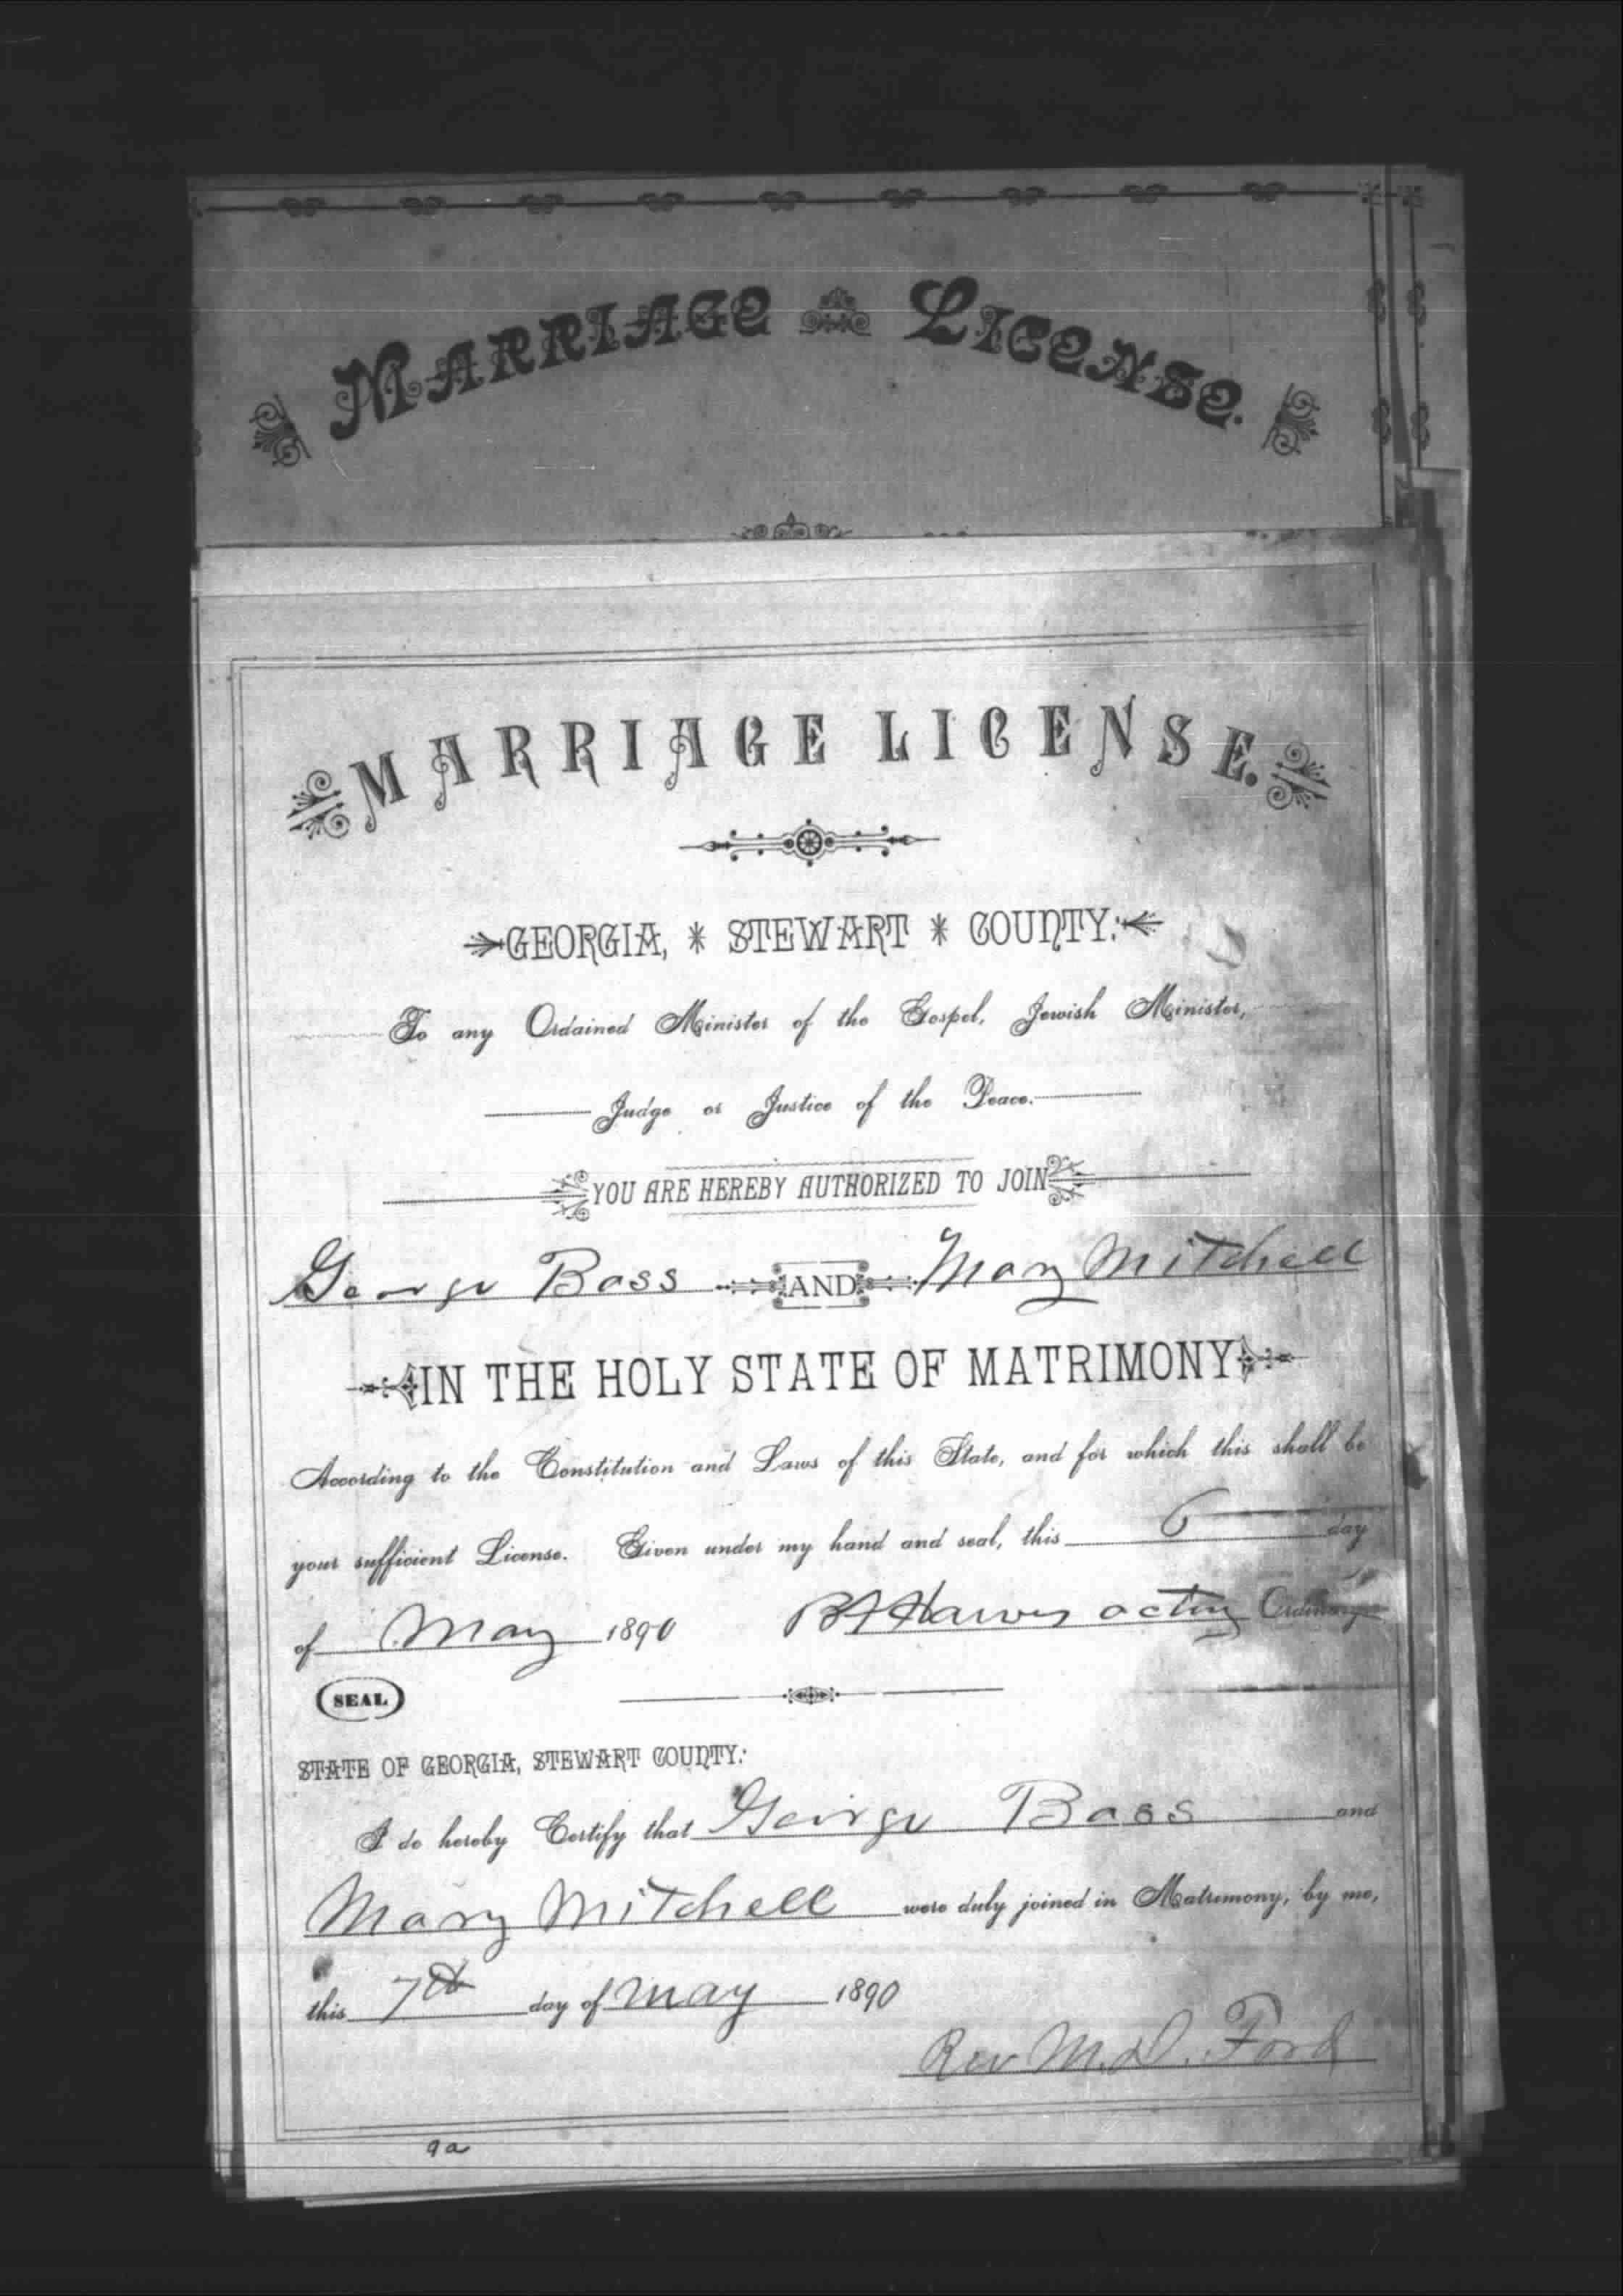 MARRIAGE LICENSE.
MARRIAGE LICENSE.
GEORGIA, * STEWART * COUNTY:
To any Ordained Minister of the Gospel, Jewish Minister,
Judge or Justice of the Peace.
YOU ARE HEREBY AUTHORIZED TO JOIN
George Bass AND Mary Mitchell
IN THE HOLY STATE OF MATRIMONY
According to the Constitution and Laws of this State, and for which this shall be
your sufficient License. Given under my hand and seal, this 6 day
of May 1890 acting Ordinary
SEAL
STATE OF GEORGIA, STEWART COUNTY:
I do hereby Certify that George Bass and
Mary Mitchell were duly joined in Matrimony, by me,
this 7th day of May 1890
Rev M.D. Ford
9a